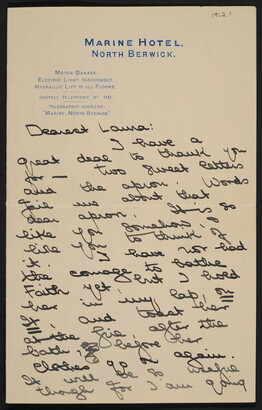 1912?
MARINE HOTEL,
NORTH BERWICK.
MOTOR GARAGE.
ELECTRIC LIGHT THROUGHOUT.
HYDRAULIC LIFT TO ALL FLOORS.
(HOTEL) TELEPHONE No 110
TELEGRAPHIC ADDRESS:-
"MARINE, NORTH BERWICK"
Dearest Laura:
I have a
great deal to thank you
for — two sweet letters
and the apron. Words
fail me about that
dear apron. It is so
like you somehow &
like you to think of
it. I have not had
the courage to bathe
Faith yet but I hold
her in my lap, on
it, and toast her
at the fire after the
bath, before her
clothes go on again.
It will be so useful
though for I am going